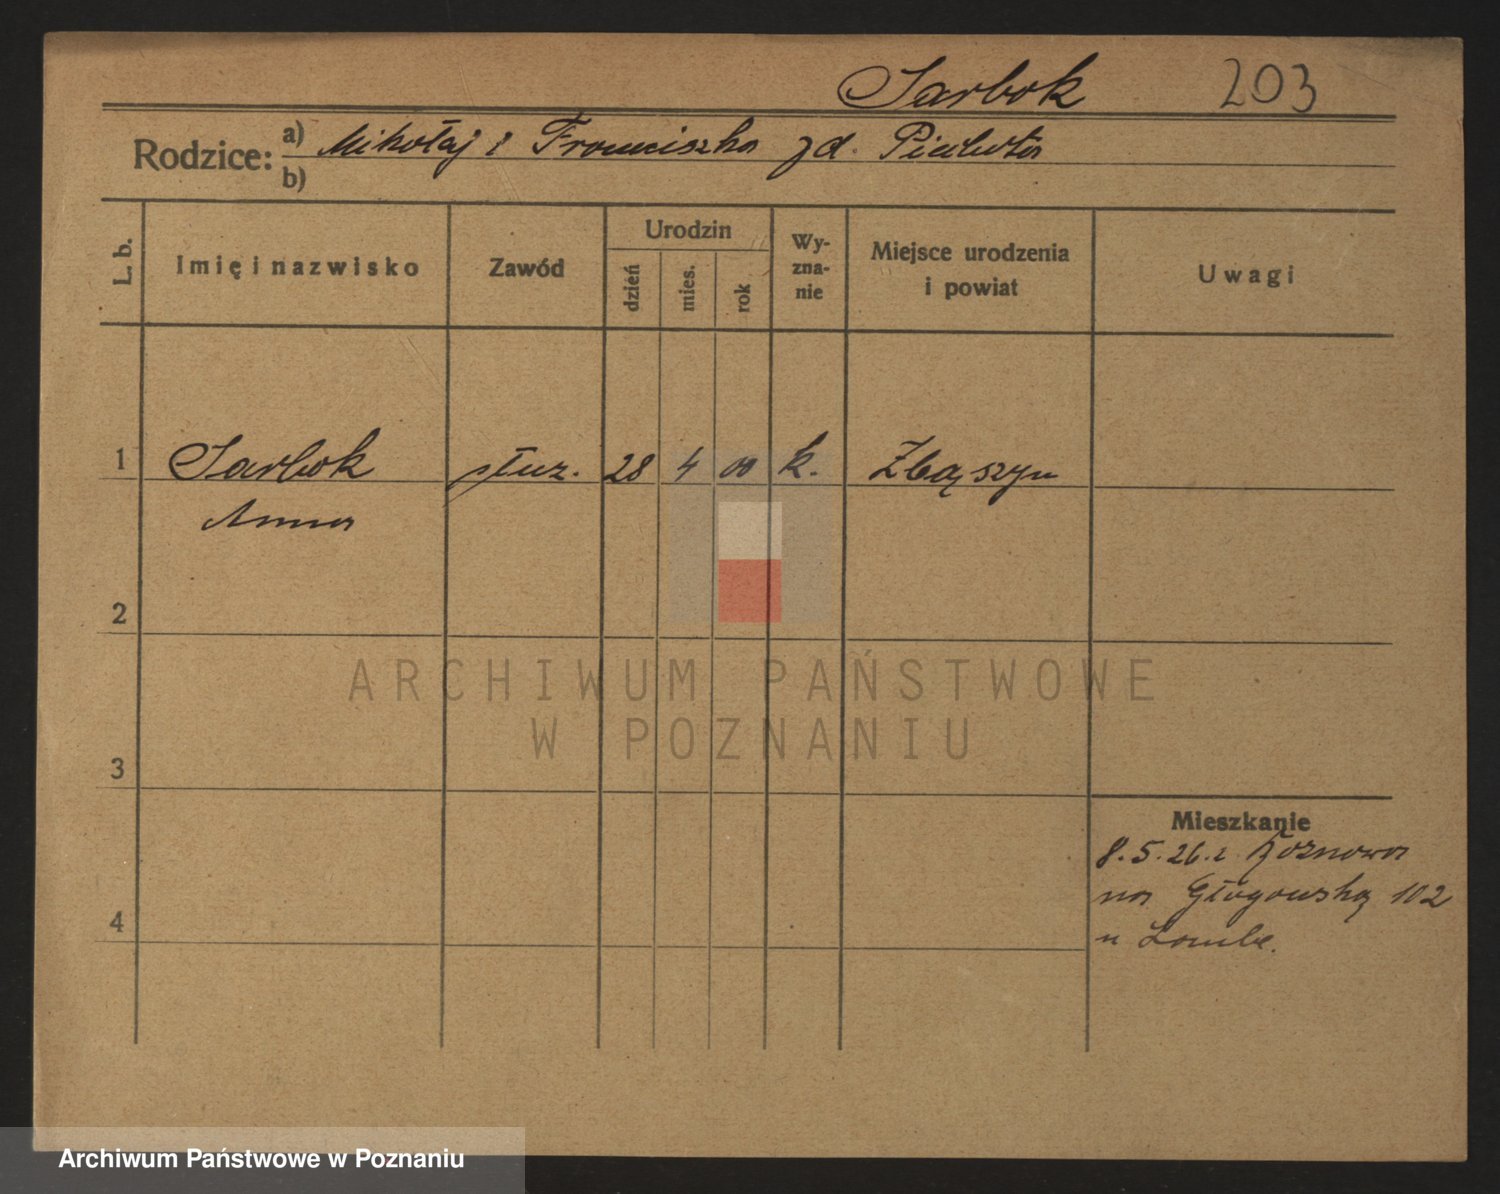 Sarbok 203
Rodzice: a) Mikołaj i Franciszka zd.
b)
L. b. Imię i nazwisko Zawód Urodzin dzień mies. rok Wyznanie Miejsce urodzenia i powiat Uwagi
1 Sarbok służ. 28 4 00 k. Zbąszyn
Anna
2
3
4
Mieszkanie
8.5.26. z
na Głogowską 102
u
ARCHIWUM PAŃSTWOWE
W POZNANIU
Archiwum Państwowe w Poznaniu